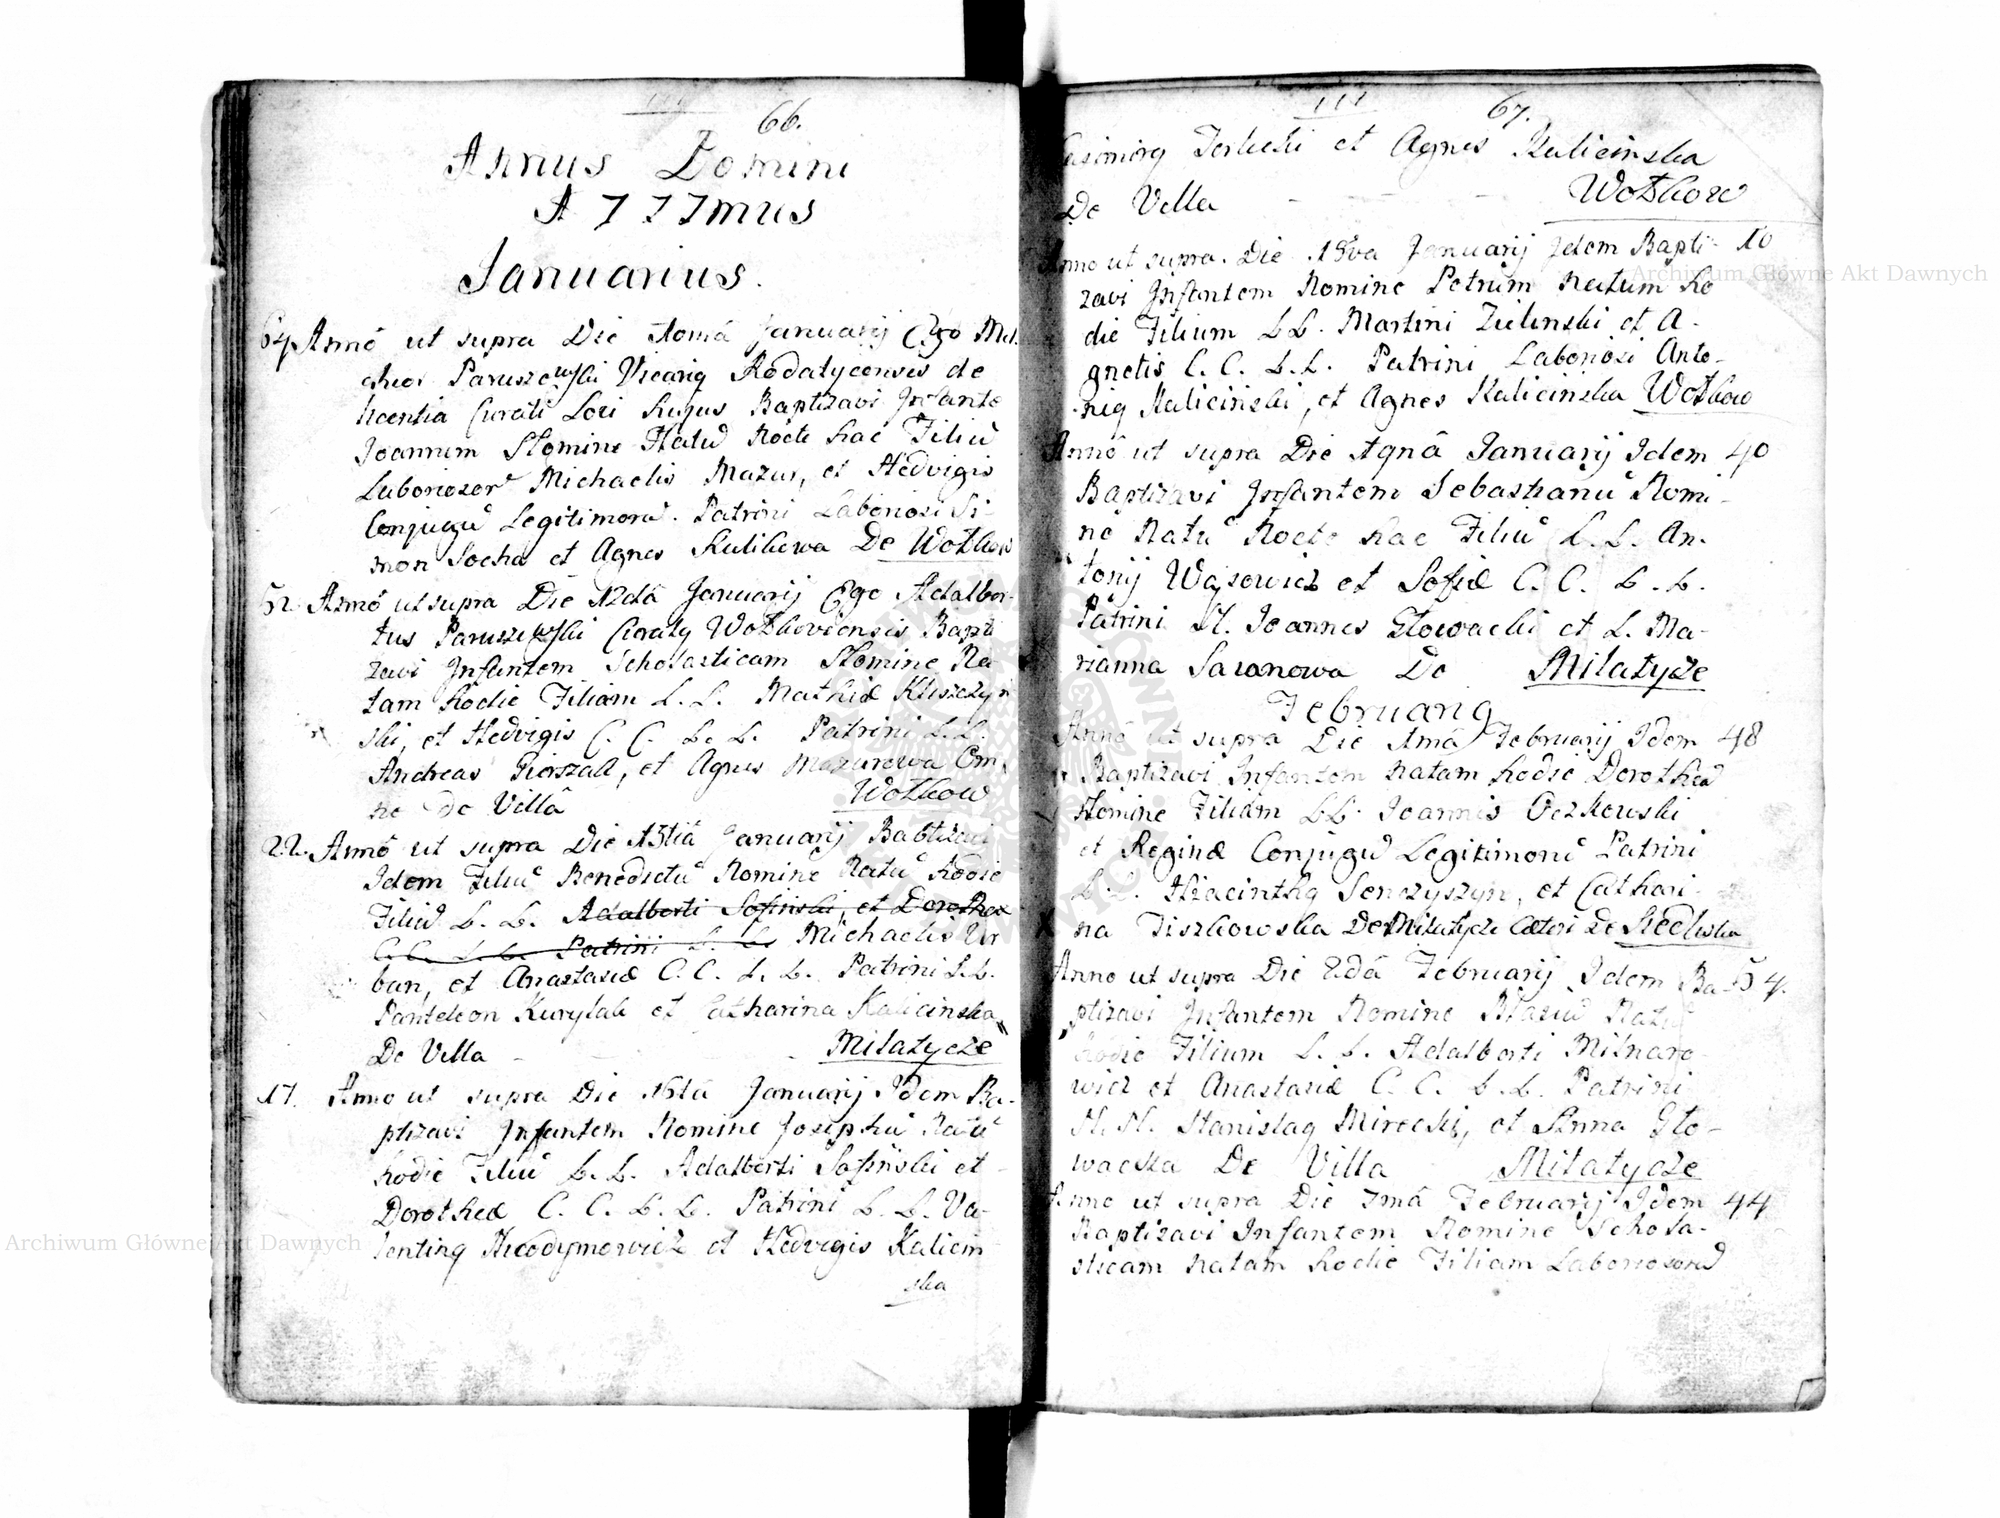 66.
Annus Domini
1777mus
Januarius.
64 Annô ut supra Die 1omâ Januarij Ego Mel
chior Paruszewski Vicarig Rodatycensis de
licentia Curati Loci hujus Baptizavi Infante
Joannem Nomine Natū Nocte hac Filiū
Laboriosor Michaelis Mazur, et Hedvigis
Conjugū Legitimorū. Patrini Laboriosi Si-
mon Socha et Agnes Kulikowa De Wołkow
52 Annô ut supra Die 12dâ Januarij Ego Adalber-
tus Paruszewski Curatg Wołkoviensis Bapti
zavi Infantem Scholasticam Nomine Na-
tam hodie Filiam L. L. Mathiæ Kliszczyn
ski, et Hedvigis C. C. L. L. Patrini L. L.
Andreas Pierszak, et Agnes Mazurowa Om
ne de Villâ Wołkow
22. Annô ut supra Die 13tiâ Januarij Babtizavi
Idem Filiū Benedictū Nomine Natū hodie
Filiū L. L. Adalberti Sosinski, et Dorotheæ
C. C. L. L. Patrini L. L. Michaelis Ur
ban, et Anastasiæ C. C. L. L. Patrini L. L.
Panteleon Kurylak et Catharina Kalicinska
De Villa - - - Miłatycze
17. Anno ut supra Die 16tâ Januarij Idem Ba-
ptizavi Infantem Nomine Josephū Natū
hodie Filiū L. L. Adalberti Sosinski et
Dorotheæ C. C. L. L. Patrini L. L. Va-
lenting Nieodymowicz et Hedvigis Kalicin
ska
67.
Casimirg Terlecki et Agnes Kalicinska
De Villa - - - Wołkow
Anno ut supra. Die 18va Januarij Idem Bapti- 10
zavi Infantem Nomine Petrum Natum ho
die Filium LL. Martini Zielinski et A-
gnetis C. C. L. L. Patrini Laboriosi Anto-
nig Kalicinski, et Agnes Kalicinska Wołkow
Annô ut supra Die 19nâ Januarij Idem 40
Baptizavi Infantem Sebastianū Nomi-
ne Natū Nocte hac Filiū L. L. An-
tonij Wąsowicz et Sofiæ C. C. L. L.
Patrini N. Joannes Głowacki et L. Ma-
rianna Saranowa De Miłatycze
Februarig
Annô ut supra Die 1mâ Februarij Idem 48
Baptizavi Infantem Natam hodie Dorotheā
Nomine Filiam LL. Joannis Oczkowski
et Reginæ Conjugū Legitimorū Patrini
L. L. Hiacinthg Senczyszyn, et Cathari-
na Tiszkowska De Miłatycze Cæteri De Siedliska
Anno ut supra Die 2dâ Februarij Idem Ba- 54.
ptizavi Infantem Nomine Błasiū Natū
hodie Filium L. L. Adalberti Milnaro-
wicz et Anastasiæ C. C. L. L. Patrini
N. N. Stanislag Mirecki, et Anna Gło-
wacka De Villa Miłatycze
Anno ut supra Die 7mâ Februarij Idem 44
Baptizavi Infantem Nomine Schola-
sticam Natam hodie Filiam Laboriosorū
Archiwum Główne Akt Dawnych
Archiwum Główne Akt Dawnych